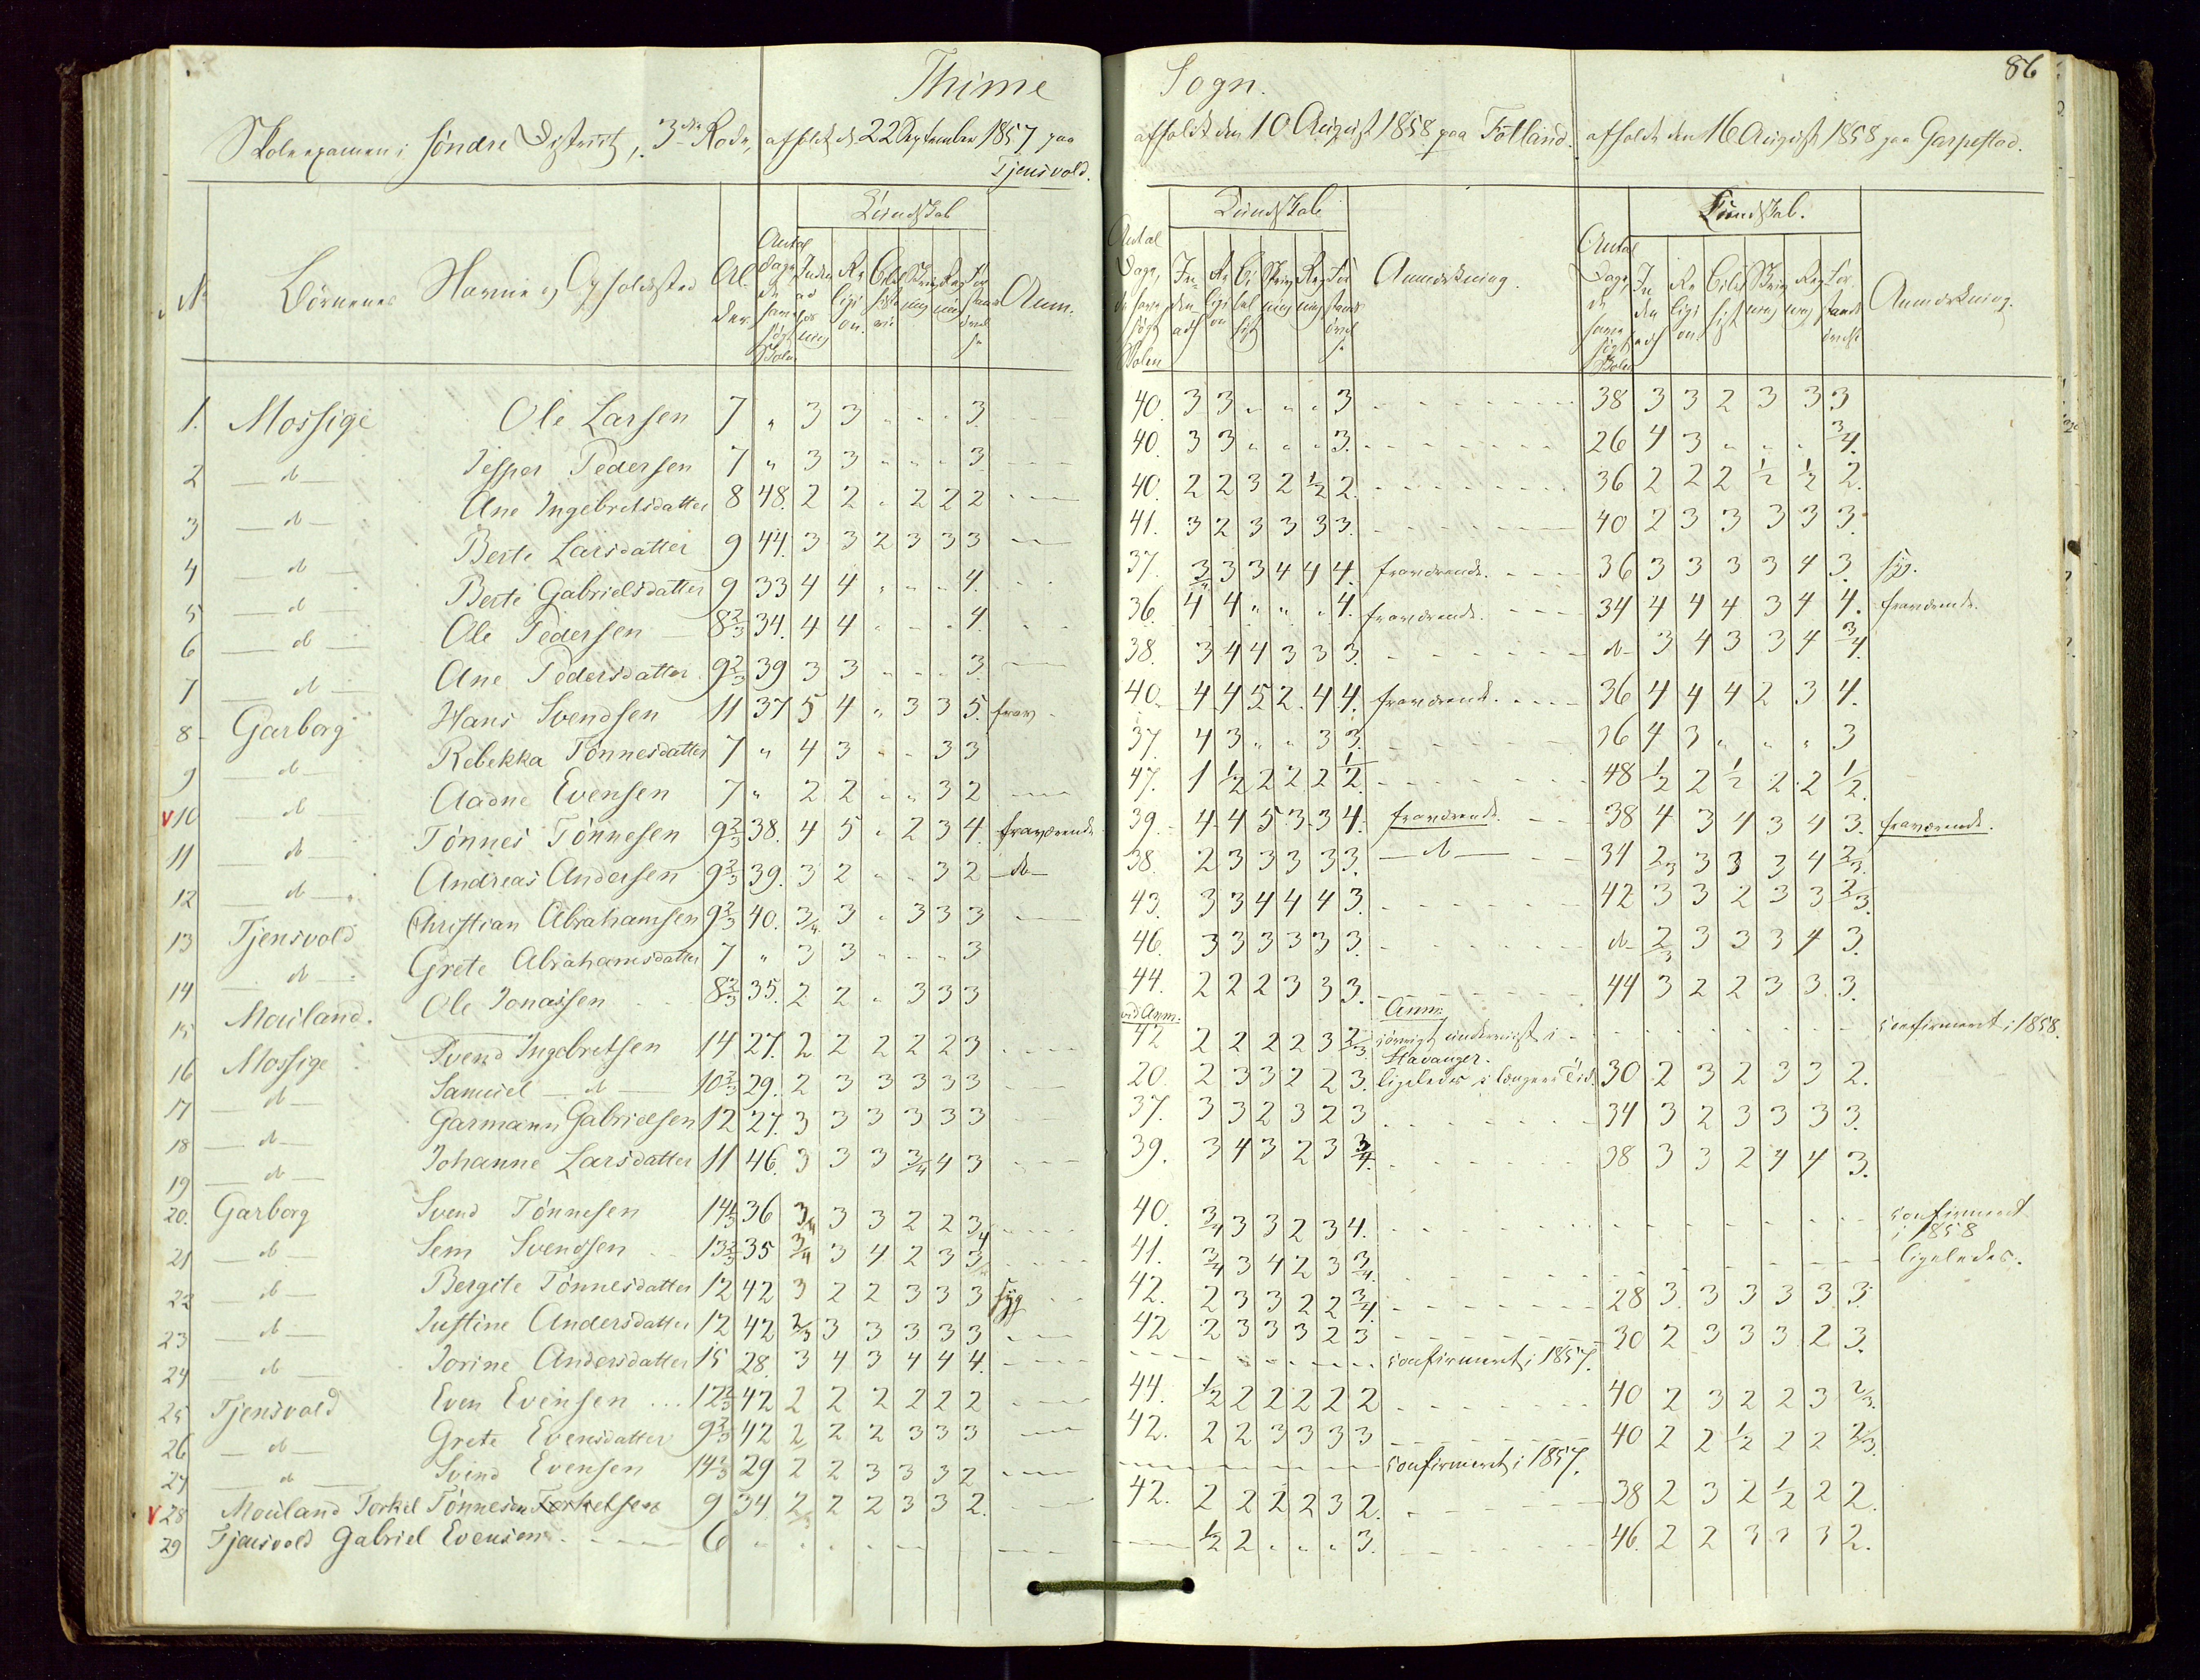 Thime Sogn. 86
Skoleexamen i Søndre District, 3die Rode, afholdt d. 22 September 1857 paa Tjensvold.
afholdt den 10 August 1858 paa Fotland.
afholdt den 16 August 1858 paa Garpestad.
Kundskab Kundskab Kundskab.
No Børnenes Navne og Opholdssted Alder. Antal Dage, de have søgt Skolen Religion. Skrivning Anm.
Antal Dage, de have søgt Skolen Religion Skrivning Anmærkning.
Antal Dage de have søgt Skolen Religion Skrivning Anmærkning.
1. Mossige Ole Larsen 7 „ 3 3 „ „ „ 3. 40. 3 3 „ „ „ 3 38 3 3 2 3 3 3
2 — do — Jesper Pedersen 7 „ 3 3 „ „ „ 3. 40. 3 3 „ „ „ 3. 26 4 3 „ „ „ 3/4.
3 — do — Ane Ingebretsdatter 8 48. 2 2 „ 2 2 2 40. 2 2 3 2 1/2 2. 36 2 2 2 1/2 1/2 2.
4 — do — Berte Larsdatter 9 44. 3 3 2 3 3 3 41. 3 2 3 3 3 3. 40 2 3 3 3 3 3.
5 — do — Berte Gabrielsdatter 9 33 4 4 „ „ „ 4. 37. 3/4 3 3 4 4 4. fraværende. 36 3 3 3 3 4 3. syg.
6 — do — Ole Pedersen 8 2/3 34. 4 4 „ „ „ 4. 36. 4 4 „ „ „ 4. fraværende. 34 4 4 4 3 4 4. fraværende.
7 — do — Ane Pedersdatter 9 2/3 39 3 3 „ „ „ 3. 38. 3 4 4 3 3 3. do 3 4 3 3 4 3/4.
8 Garborg Hans Svendsen 11 37 5 4 „ 3 3 5. frav. 40. 4 4 5 2 4 4. fraværende. 36 4 4 4 2 3 4.
9 — do — Rebekka Tønnesdatter 7 „ 4 3 „ „ 3 3 37. 4 3 „ „ 3 3. 36 4 3 „ „ „ 3
v 10 — do Aadne Evensen 7 „ 2 2 „ „ 3 2 47. 1 1/2 2 2 2 1/2. 48 1/2 2 1/2 2 2 1/2.
11 — do — Tønnes Tønnesen 9 2/3 38. 4 5 „ 2 3 4. fraværende 39. 4 4 5 3 3 4. fraværende. 38 4 3 4 3 4 3. fraværende.
12 — do — Andreas Andersen 9 2/3 39. 3 2 „ „ 3 2 — do — 38. 2 3 3 3 3 3. — do — 34 2/3 3 3 3 4 2/3.
13 Tjensvold Christian Abrahamsen 9 2/3 40. 3/4 3 „ 3 3 3 43. 3 3 4 4 4 3. 42 3 3 2 3 3 2/3.
14 — do — Grete Abrahamsdatter 7 „ 3 3 „ „ „ 3 46. 3 3 3 3 3 3. do 2/3 3 3 3 4 3.
15 Mauland. Ole Jonassen 8 2/3 35. 2 2 „ 3 3 3 44. 2 2 2 3 3 3. 44 3 2 2 3 3 3.
vid Anm. Anm:
16 Mossige Svend Ingebretsen 14 27. 2 2 2 2 2 3 42 2 2 2 2 3 2/3. forøvrigt underviist i Stavanger. confirmeret i 1858.
17 — do — Samuel — do — 10 2/3 29. 2 3 3 3 3 3 20. 2 3 3 2 2 3. ligeledes i længere Tid. 30 2 3 2 3 3 2.
18 — do — Garmann Gabrielsen 12 27. 3 3 3 3 3 3 37. 3 3 2 3 2 3 34 3 2 3 3 3 3.
19 — do — Johanne Larsdatter 11 46. 3 3 3 3/4 4 3 39. 3 4 3 2 3 3/4. 38 3 3 2 4 4 3.
20. Garborg Svend Tønnesen 14 1/3 36 3/4 3 3 2 2 3/4 40. 3/4 3 3 2 3 4. confirmeret i 1858
21 — do — Sem Svendsen 13 2/3 35 3/4 3 4 2 3 3/4 41. 3/4 3 4 2 3 3/4. ligeledes.
22 — do — Bergite Tønnesdatter 12 42 3 2 2 3 3 3 syg 42. 2 3 3 2 2 3/4. 28 3. 3 3 3 3. 3.
23 — do — Justine Andersdatter 12 42 2/3 3 3 3 3 3 42 2 3 3 3 2 3 30 2 3 3 3 2 3.
24 — do — Jorine Andersdatter 15 28. 3 4 3 4 4 4. confirmeret i 1857.
25 Tjensvold Even Evensen 12 2/3 42 2 2 2 2 2 2 44. 1/2 2 2 2 2 2 40 2 3 2 2 3 2/3.
26 — do — Grete Evensdatter 9 2/3 42 2 2 2 3 3 3 42. 2 2 3 3 3 3 40 2 2 1/2 2 2 2/3.
27 — do — Svend Evensen 14 2/3 29 2 2 3 3 3 2 confirmeret i 1857.
v 28 Mauland Torkel Tønnesen Torkelsen 9 34. 2/3 2 2 3 3 2. 42. 2 2 2 2 3 2. 38 2 3 2 1/2 2 2.
29 Tjensvold Gabriel Evensen 6 „ 1/2 2 „ „ „ 3. 46. 2 2 3 3 3 2.